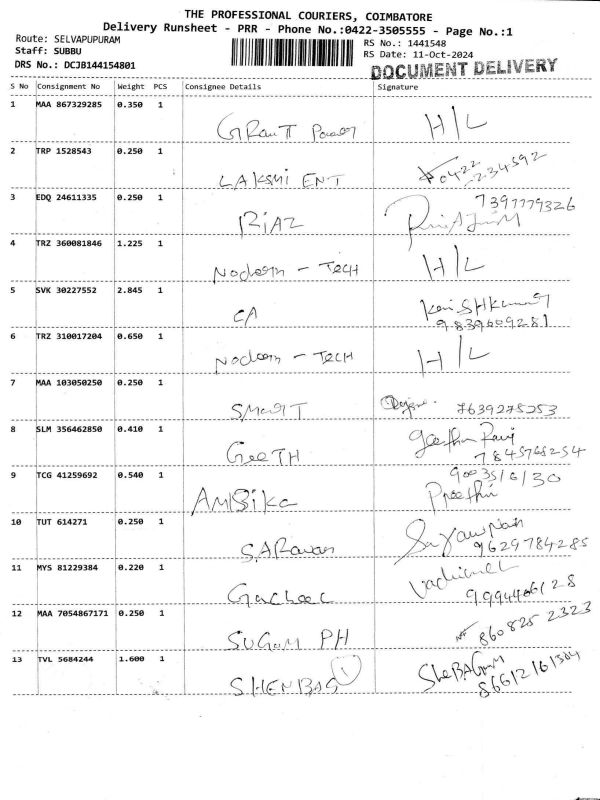 THE PROFESSIONAL COURIERS, COIMBATORE
Delivery Runsheet - PRR - Phone No.:0422-3505555 - Page No.:1
Route: SELVAPUPURAM
Staff: SUBBU
DRS No.: DCJB144154801
RS No.: 1441548
RS Date: 11-Oct-2024
DOCUMENT DELIVERY
S No Consignment No Weight PCS Consignee Details Signature
1 MAA 867329285 0.350 1 H/L
2 TRP 1528543 0.250 1 LAKSMI ENT 0422
2234592
3 EDQ 24611335 0.250 1 RIAZ 7397779326
4 TRZ 360081846 1.225 1 Nodoorn - TECH H/L
5 SVK 30227552 2.845 1 CA
9839609281
6 TRZ 310017204 0.650 1 Nodoorn - TECH H/L
7 MAA 103050250 0.250 1 SMART 7639275253
8 SLM 356462850 0.410 1 GeeTH Geetha Ravi
7845768254
9 TCG 41259692 0.540 1 AMBIKA 9003516130
Preethi
10 TUT 614271 0.250 1 SARavan
9629784285
11 MYS 81229384 0.220 1
9994406128
12 MAA 7054867171 0.250 1 SUGUM PH 860825 2323
13 TVL 5684244 1.600 1 SHENBAG 1 SheBAGAM
86612161304